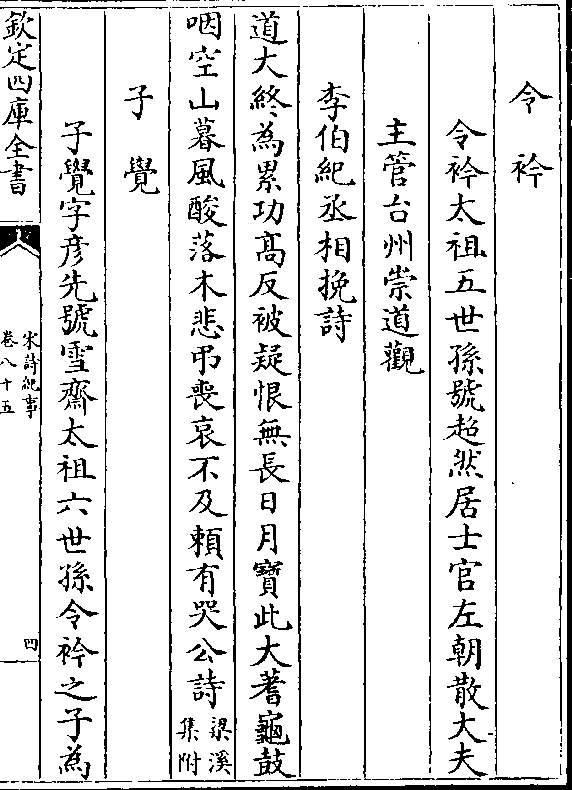 令衿
令衿太祖五世孫號超然居士官左朝散大夫
主管台州崇道觀
李伯紀丞相挽詩
道大終為累功髙反被疑恨無長日月寶此大蓍龜鼓
咽空山暮風酸落木悲弔喪哀不及賴有哭公詩梁溪
集附
子覺
子覺字彦先號雪齋太祖六世孫令衿之子為
欽定四庫全書
宋詩紀事
卷八十五
四